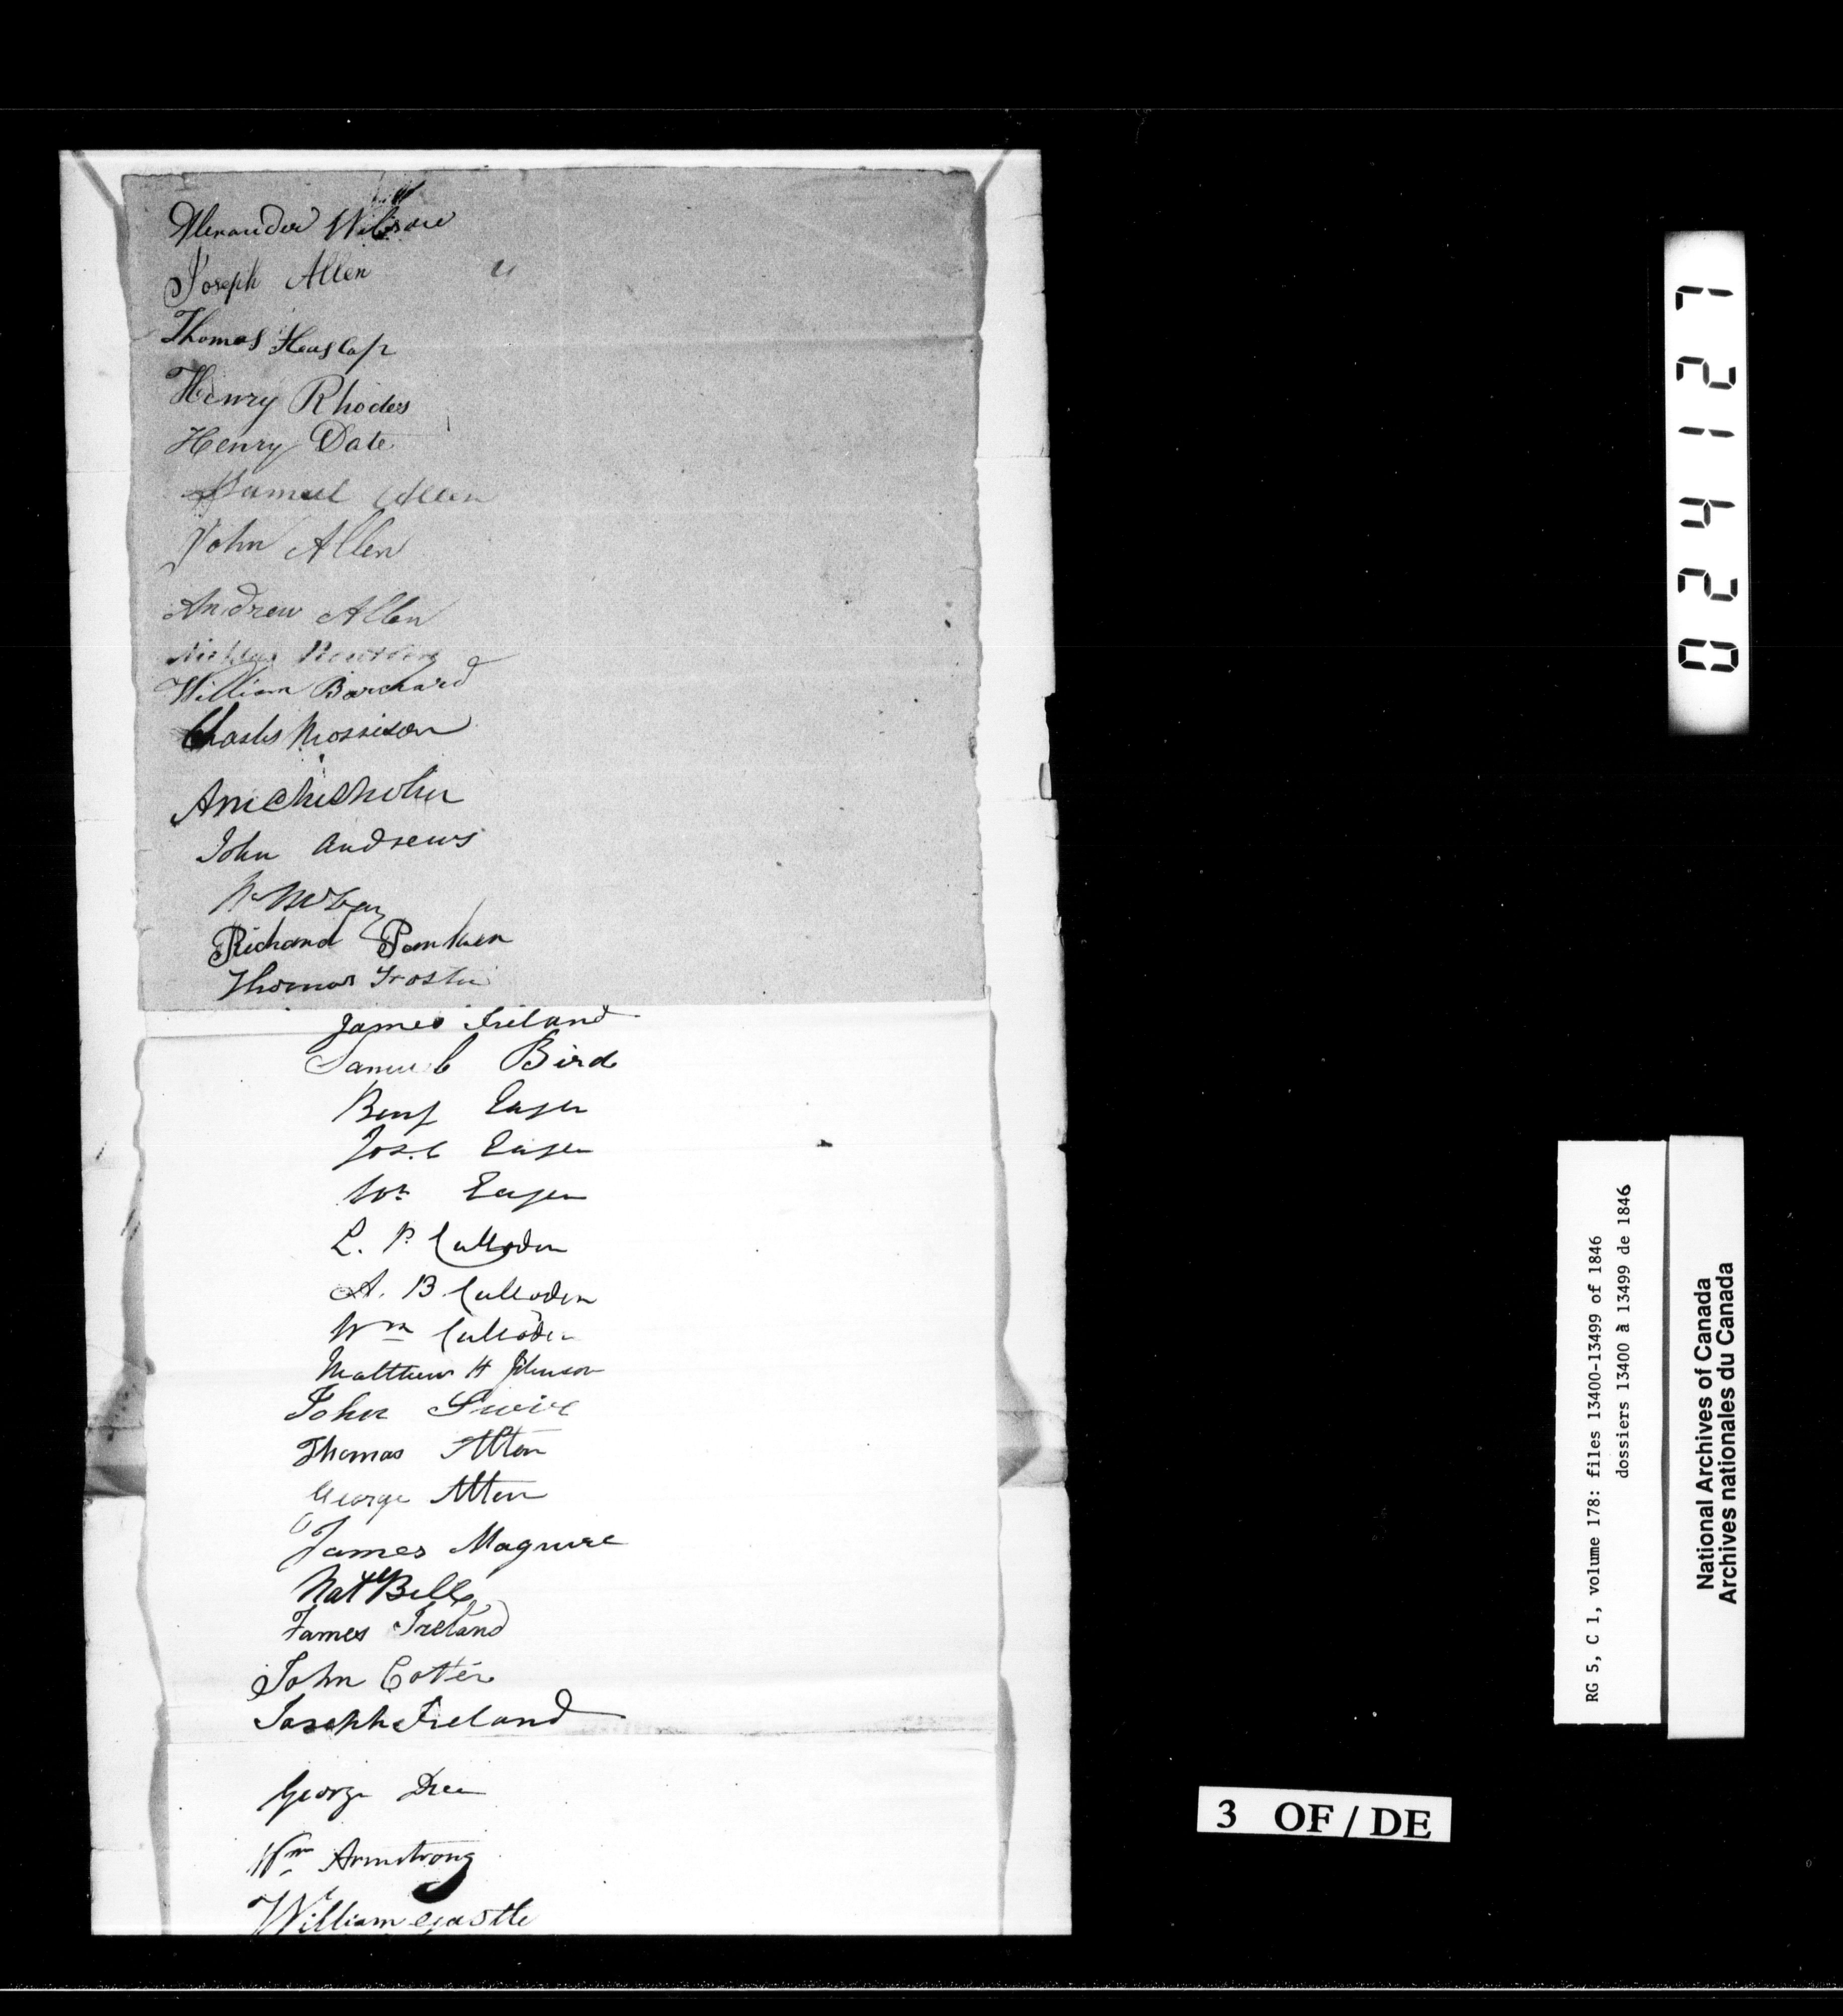 Alexander Wilson
Joseph Allen
Thomas Heaslap
Henry Rhodes
Henry Date
Samuel Allen
John Allen
Andrew Allen
William Barchard
Charles Morrison
John Andrews
Richard
Thomas Foster
James Ireland
Samuel Bird
Benj Eager
Jos. C Eager
Wm Eager
L. P. Culloden
A. B. Culloden
Wm Culloden
Matthew H Johnson
John
Thomas Alton
George Alton
James Maguire
Natl Bell
James Ireland
John Cotter
Joseph Ireland
George
Wm Armstrong
William Castle
024127
RG 5, C 1, volume 178: files 13400-13499 of 1846
dossiers 13400 à 13499 de 1846
National Archives of Canada
Archives nationales du Canada
3 OF / DE